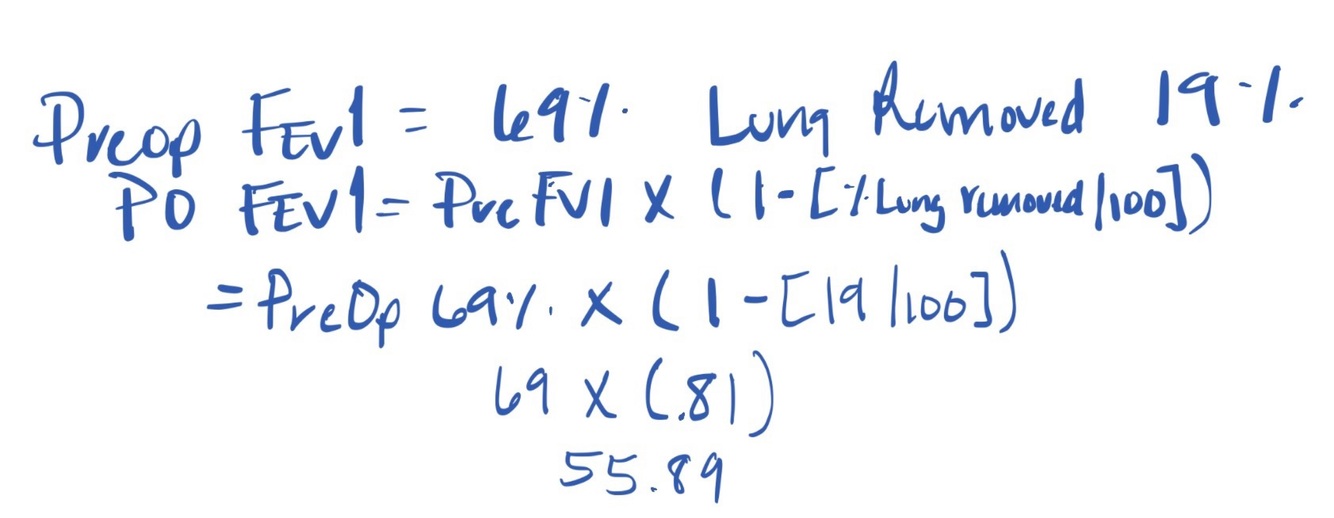 Preop FEV1 = 69% Lung Removed 19%
PO FEV1 = Pre FV1 X (1-[% Lung removed/100])
= PreOp 69% X (1-[19/100])
69 X (.81)
55.89